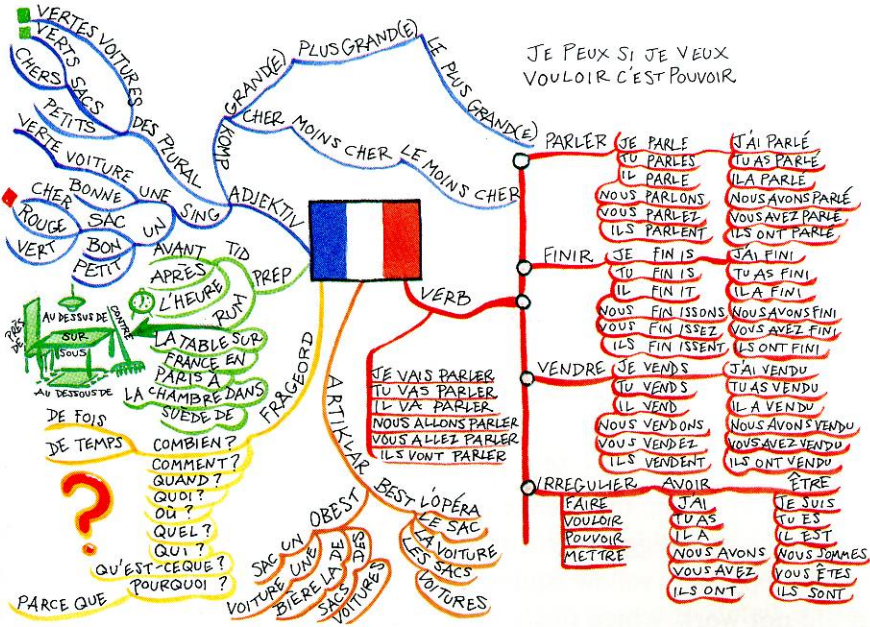 JE PEUX SI JE VEUX
VOULOIR C'EST POUVOIR
ADJEKTIV
KOMP
GRAND(E) PLUS GRAND(E) LE PLUS GRAND(E)
CHER MOINS CHER LE MOINS CHER
DES PLURAL
VERTES VOITURES
VERTS SACS
CHERS
PETITS
SING
UNE
VERTE VOITURE
BONNE
UN
SAC
CHER
ROUGE
VERT
BON
PETIT
PREP
TID
AVANT
APRÈS
L'HEURE
RUM
LA TABLE SUR
FRANCE EN
PARIS À
LA CHAMBRE DANS
SUÈDE DE
PRÈS DE
AU DESSUS DE
CONTRE
SUR
SOUS
AU DESSOUS DE
FRÅGEORD
COMBIEN?
DE FOIS
DE TEMPS
COMMENT?
QUAND?
QUOI?
OÙ?
QUEL?
QUI?
QU'EST-CEQUE?
POURQUOI?
PARCE QUE
?
ARTIKLAR
OBEST
SAC UN
VOITURE UNE
BIÈRE LA DE
DES
SACS
VOITURES
BEST
L'OPÉRA
LE SAC
LA VOITURE
LES SACS
VOITURES
VERB
JE VAIS PARLER
TU VAS PARLER
IL VA PARLER
NOUS ALLONS PARLER
VOUS ALLEZ PARLER
ILS VONT PARLER
PARLER
JE PARLE
TU PARLES
IL PARLE
NOUS PARLONS
VOUS PARLEZ
ILS PARLENT
J'AI PARLÉ
TU AS PARLÉ
IL A PARLÉ
NOUS AVONS PARLÉ
VOUS AVEZ PARLÉ
ILS ONT PARLÉ
FINIR
JE FINIS
TU FINIS
IL FINIT
NOUS FINISSONS
VOUS FINISSEZ
ILS FINISSENT
J'AI FINI
TU AS FINI
IL A FINI
NOUS AVONS FINI
VOUS AVEZ FINI
ILS ONT FINI
VENDRE
JE VENDS
TU VENDS
IL VEND
NOUS VENDONS
VOUS VENDEZ
ILS VENDENT
J'AI VENDU
TU AS VENDU
IL A VENDU
NOUS AVONS VENDU
VOUS AVEZ VENDU
ILS ONT VENDU
IRREGULIER
FAIRE
VOULOIR
POUVOIR
METTRE
AVOIR
J'AI
TU AS
IL A
NOUS AVONS
VOUS AVEZ
ILS ONT
ÊTRE
JE SUIS
TU ES
IL EST
NOUS SOMMES
VOUS ÊTES
ILS SONT